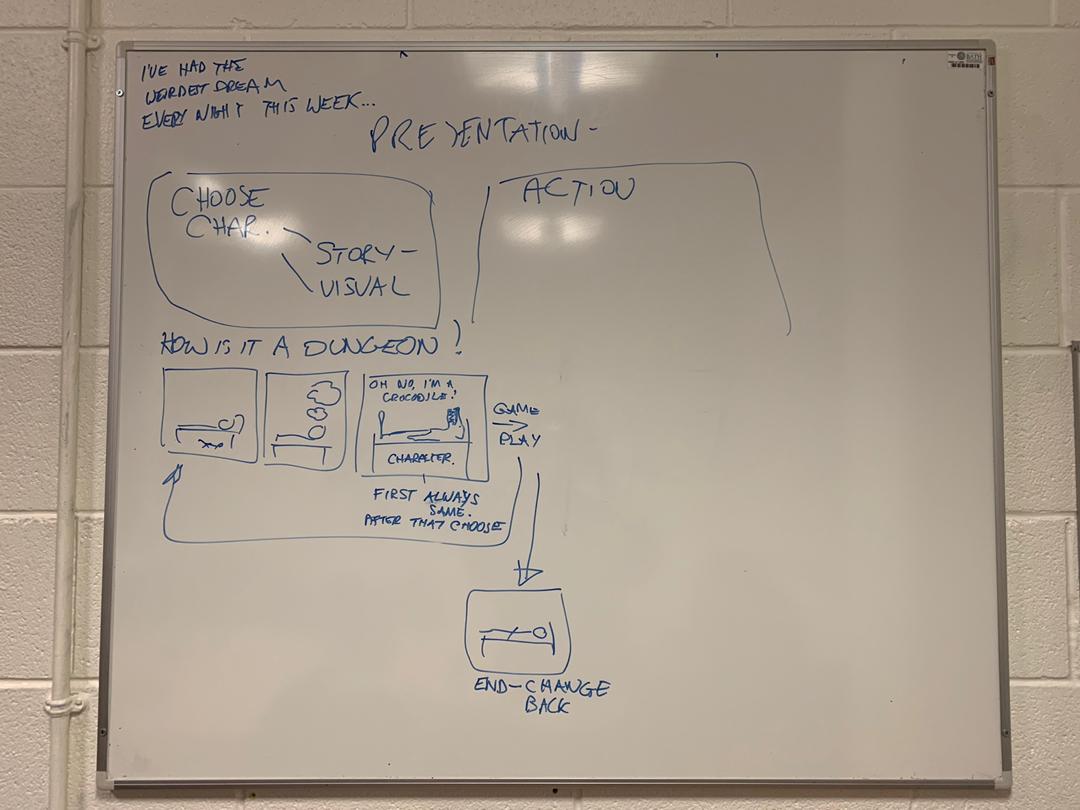 I'VE HAD THE
WEIRDEST DREAM
EVERY NIGHT THIS WEEK...
PRESENTATION-
CHOOSE
CHAR.
STORY-
VISUAL
ACTION
HOW IS IT A DUNGEON?
OH NO, I'M A
CROCODILE!
CHARACTER.
GAME
PLAY
FIRST ALWAYS
SAME.
AFTER THAT CHOOSE
END-CHANGE
BACK